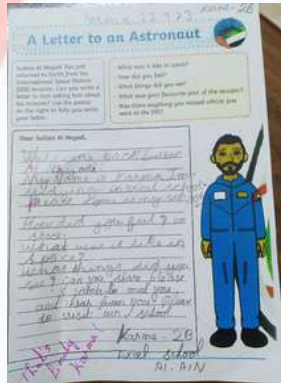 Karma 22.9.23
Karma - 2B
A Letter to an Astronaut
Sultan Al Neyadi has just
returned to Earth from his
International Space Station
(ISS) mission. Can you write a
letter to him asking him about
his mission? Use the points
on the right to help you write
your letter.
What was it like in space?
How did you feel?
What things did you see?
What was your favourite part of the mission?
Was there anything you missed whilst you
were at the ISS?
Dear Sultan Al Neyadi,
Welcome back Sultan
My name is Karma I'm
school
How did you feel in
space?
What was it like in
space?
What things did you
see? Can you share please
you
and hear from you?
to visit our school
Karma - 2B
Excel school
AL-AIN
That's
lovely
Karma!